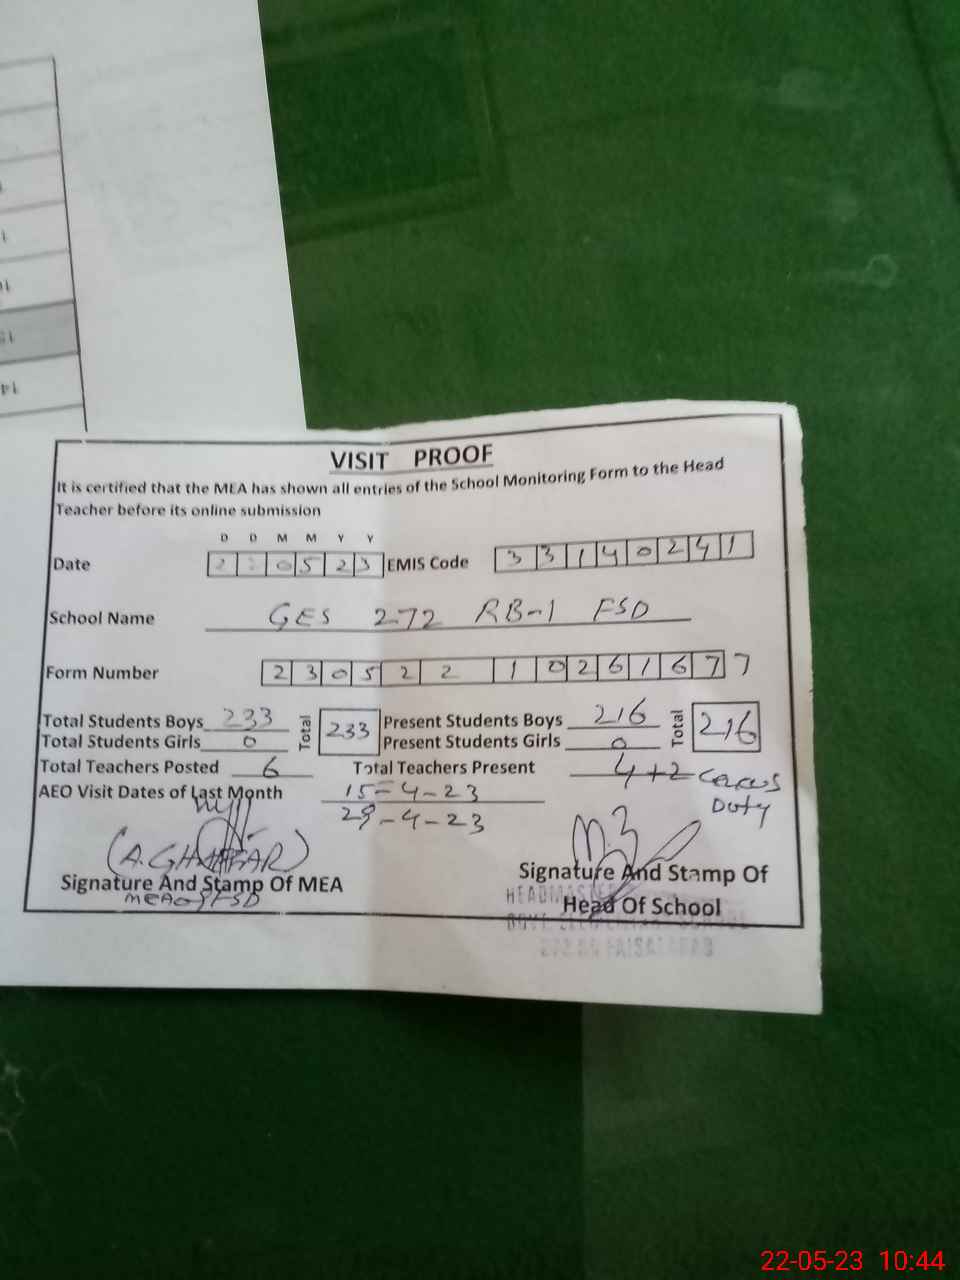 VISIT PROOF
It is certified that the MEA has shown all entries of the School Monitoring Form to the Head
Teacher before its online submission
D D M M Y Y
Date 2 2 0 5 2 3 EMIS Code 3 3 1 4 0 2 4 1
School Name GES 272 RB-1 FSD
Form Number 2 3 0 5 2 2 1 0 2 6 1 6 7 7
Total Students Boys 233 Total 233 Present Students Boys 216 Total 216
Total Students Girls 0 Present Students Girls 0
Total Teachers Posted 6 Total Teachers Present 4+2 Cencus
Duty
AEO Visit Dates of Last Month 15-4-23
29-4-23
(A.GHAFFAR)
Signature And Stamp Of MEA
MEA FSD
Signature And Stamp Of
Head Of School
HEADMASTER
FAISALABAD
14
22-05-23 10:44